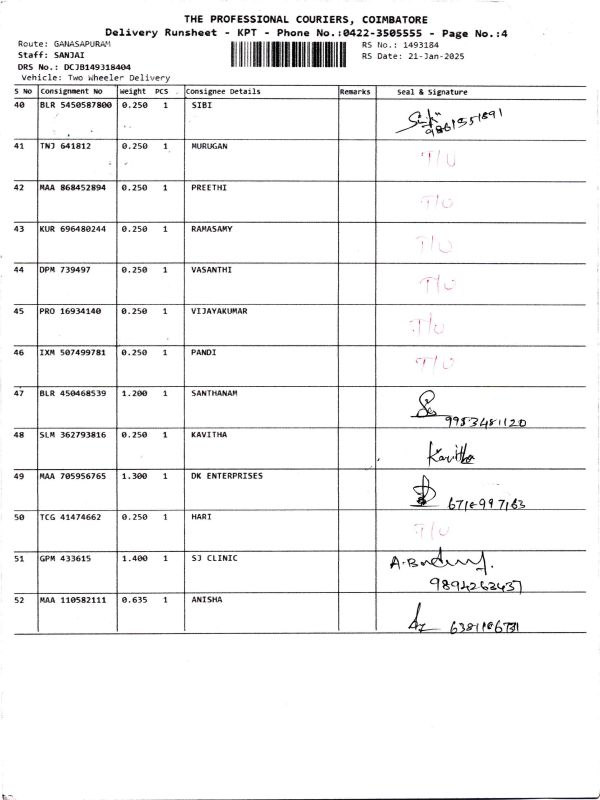 THE PROFESSIONAL COURIERS, COIMBATORE
Delivery Runsheet - KPT - Phone No.:0422-3505555 - Page No.:4
Route: GANASAPURAM RS No.: 1493184
Staff: SANJAI RS Date: 21-Jan-2025
DRS No.: DCJB149318404
Vehicle: Two Wheeler Delivery
S No Consignment No Weight PCS Consignee Details Remarks Seal & Signature
40 BLR 5450587800 0.250 1 SIBI
41 TNJ 641812 0.250 1 MURUGAN T/U
42 MAA 868452894 0.250 1 PREETHI T/U
43 KUR 696480244 0.250 1 RAMASAMY T/U
44 DPM 739497 0.250 1 VASANTHI T/U
45 PRO 16934140 0.250 1 VIJAYAKUMAR T/U
46 IXM 507499781 0.250 1 PANDI T/U
47 BLR 450468539 1.200 1 SANTHANAM
9953481120
48 SLM 362793816 0.250 1 KAVITHA Kavitha
49 MAA 705956765 1.300 1 DK ENTERPRISES
50 TCG 41474662 0.250 1 HARI T/U
51 GPM 433615 1.400 1 SJ CLINIC
9894263437
52 MAA 110582111 0.635 1 ANISHA